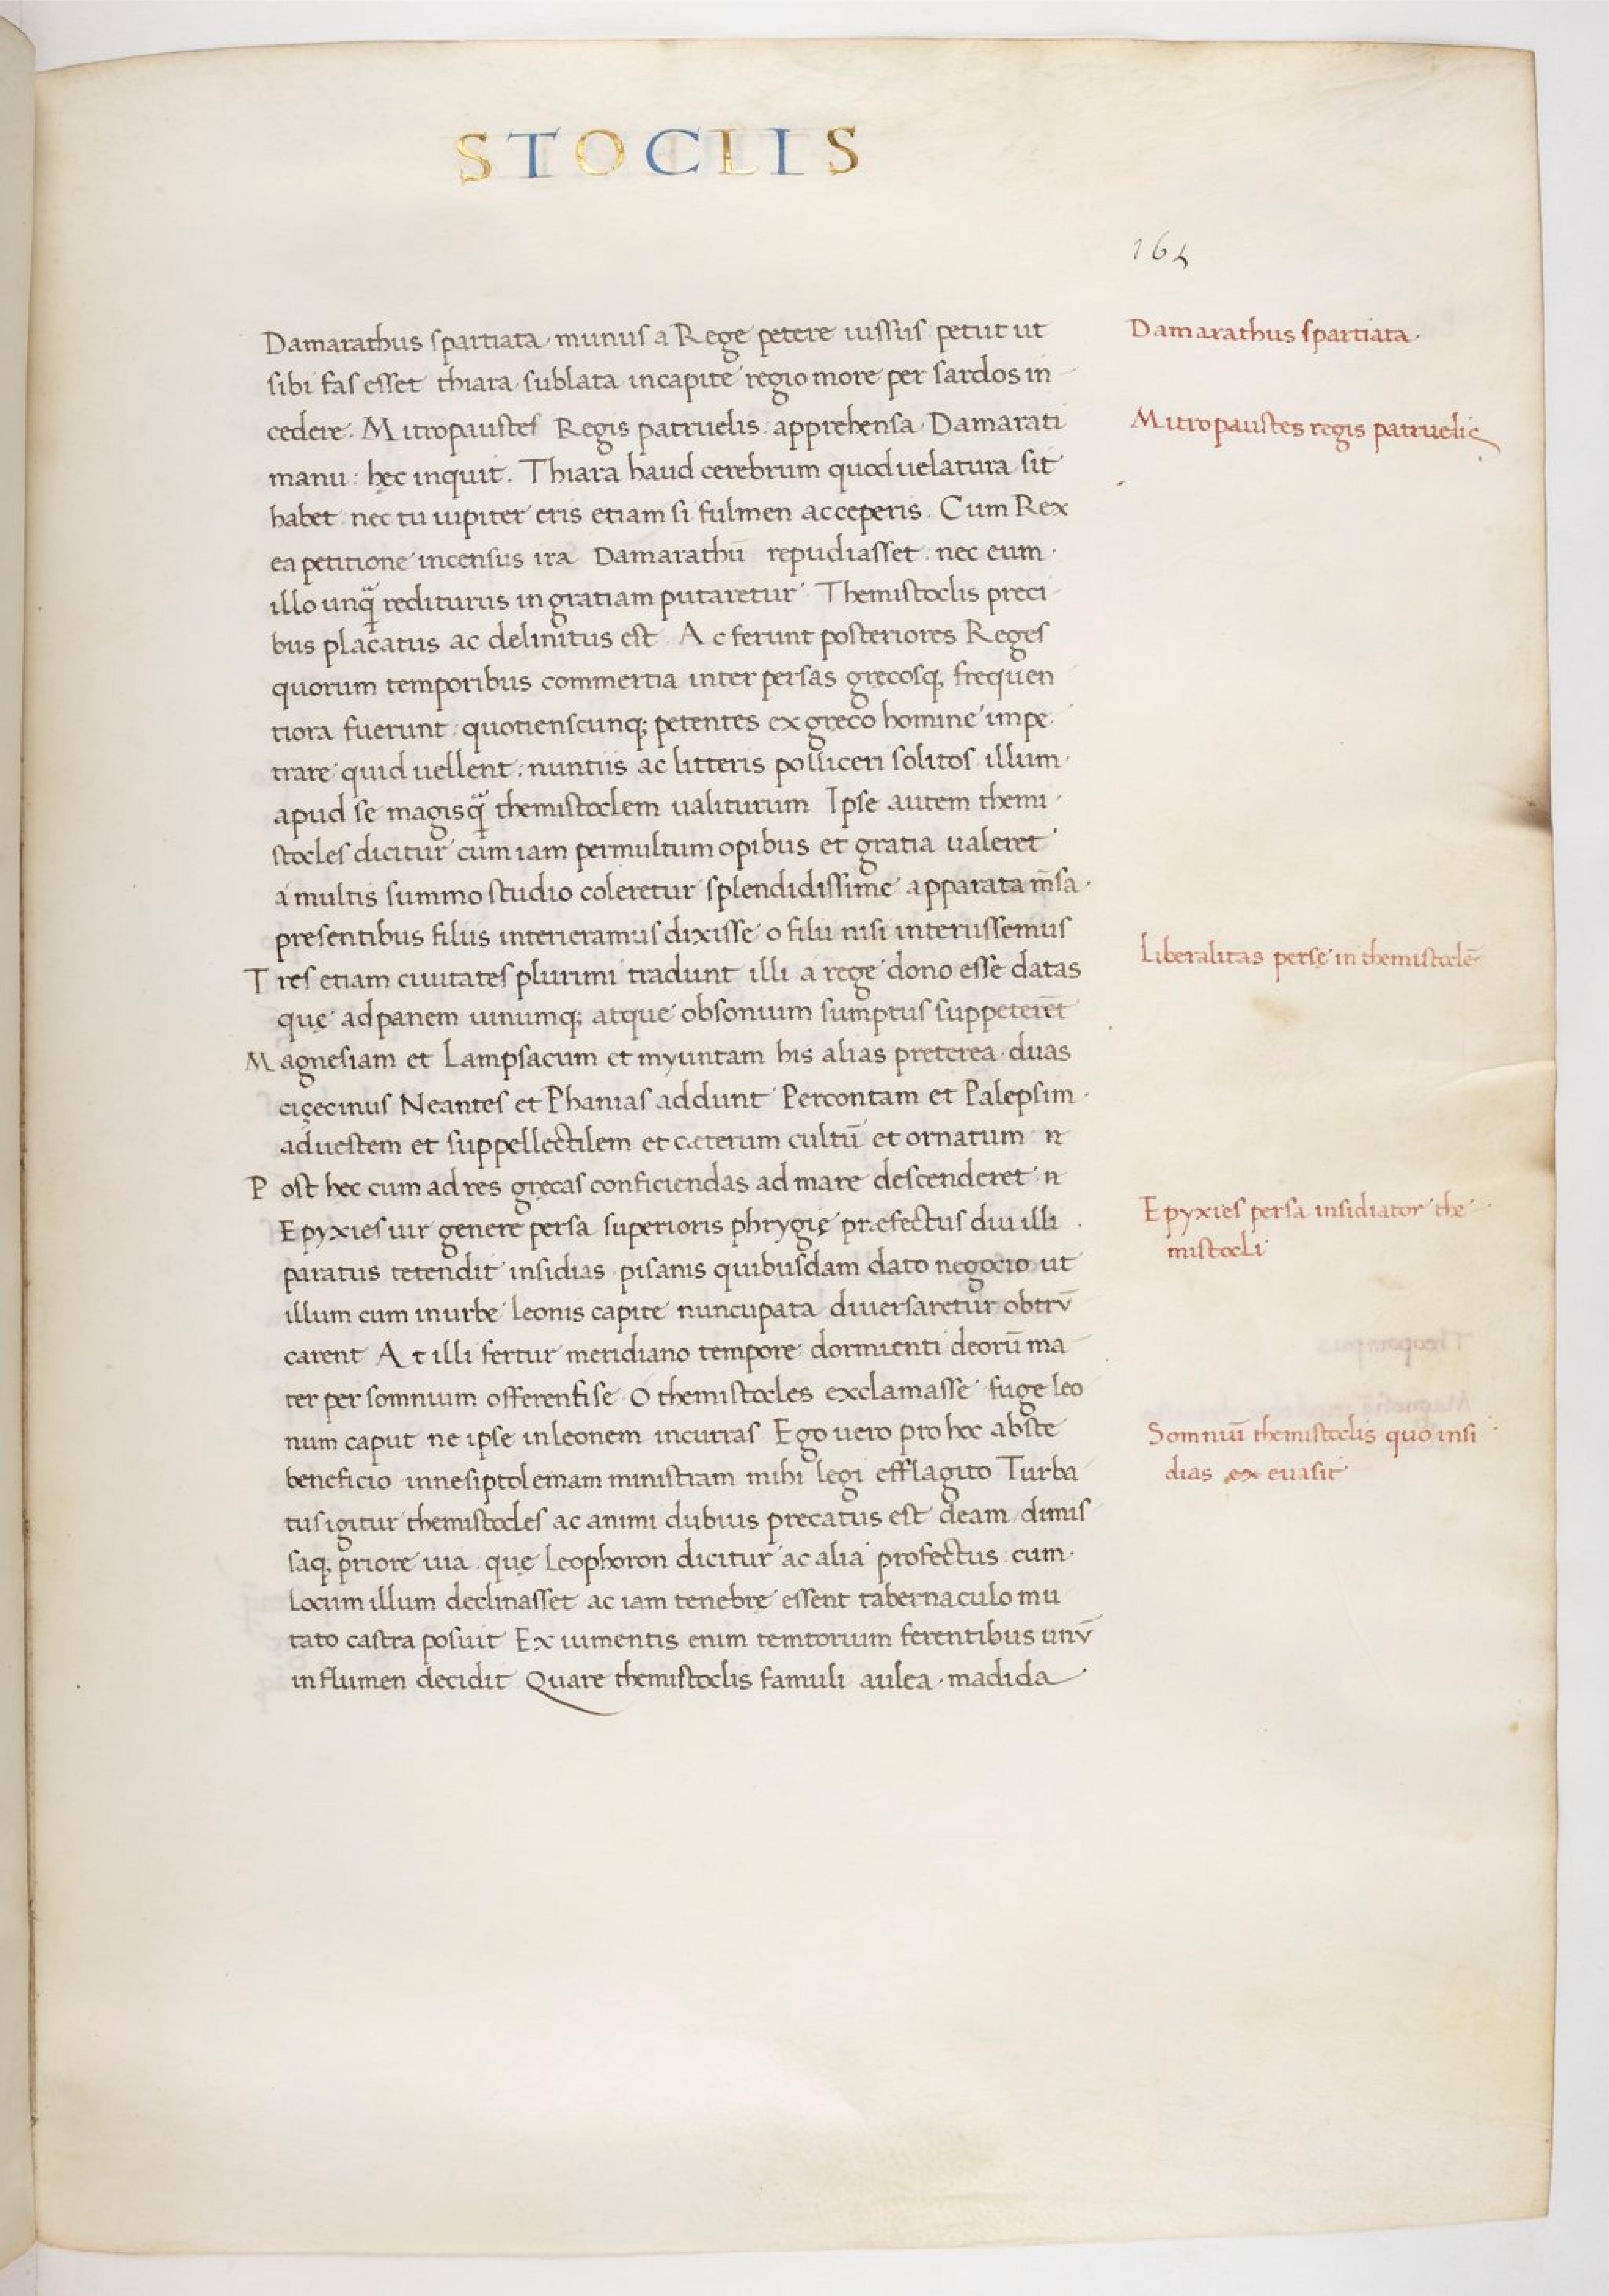 STOCLIS
165
Damarathus spartiata munus a Rege petere iussus petiit ut
sibi fas esset thiara sublata in capite regio more per sardos in
cedere. Mitropaustes Regis patruelis apprehensa Damarati
manu: hęc inquit. Thiara haud cerebrum quod uelatura sit
habet nec tu iupiter eris etiam si fulmen acceperis. Cum Rex
ea petitione incensus ira Damarathū repudiasset: nec eum
illo unq̃ rediturus in gratiam putaretur Themistoclis preci
bus placatus ac delinitus est Ac ferunt posteriores Reges
quorum temporibus commertia inter persas gręcosq; frequen
tiora fuerunt: quotienscunq; petentes ex gręco homine impe
trare quid uellent: nuntiis ac litteris polliceri solitos illum
apud se magis q̃ themistoclem ualiturum Ipse autem themi
stocles dicitur cum iam permultum opibus et gratia ualeret
a multis summo studio coleretur splendidissime apparata m̄sa
presentibus filiis interieramus dixisse o filii nisi interiissemus
Tres etiam ciuitates plurimi tradunt illi a rege dono esse datas
quę ad panem uinumq; atque obsonium sumptus suppeterēt
Magnesiam et Lampsacum et myuntam his alias preterea duas
cięcinus Neantes et Phanias addunt Percontam et Palepsim
ad uestem et suppellectilem et cæterum cultū et ornatum n
Post hec cum ad res gręcas conficiendas ad mare descenderet n
Epyxies uir genere persa superioris phrygię præfectus diu illi
paratus tetendit insidias pisanis quibusdam dato negocio ut
illum cum in urbe leonis capite nuncupata diuersaretur obtrū
carent At illi fertur meridiano tempore dormienti deorū ma
ter per somnium offerens se O themistocles exclamasse fuge leo
num caput ne ipse in leonem incurras Ego uero pro hoc abs te
beneficio innesiptolemam ministram mihi legi efflagito Turba
tus igitur themistocles ac animi dubius precatus est deam dimis
saq; priore uia quę Leophoron dicitur ac alia profectus cum
locum illum declinasset ac iam tenebrę essent tabernaculo mu
tato castra posuit Ex iumentis enim temtorium ferentibus unū
in flumen decidit Quare themistoclis famuli aulea madida
Damarathus spartiata
Mitropaustes regis patruelis
Liberalitas persę in themistoclē
Epyxies persa insidiator the
mistocli
Somniū themistoclis quo insi
dias ex euasit